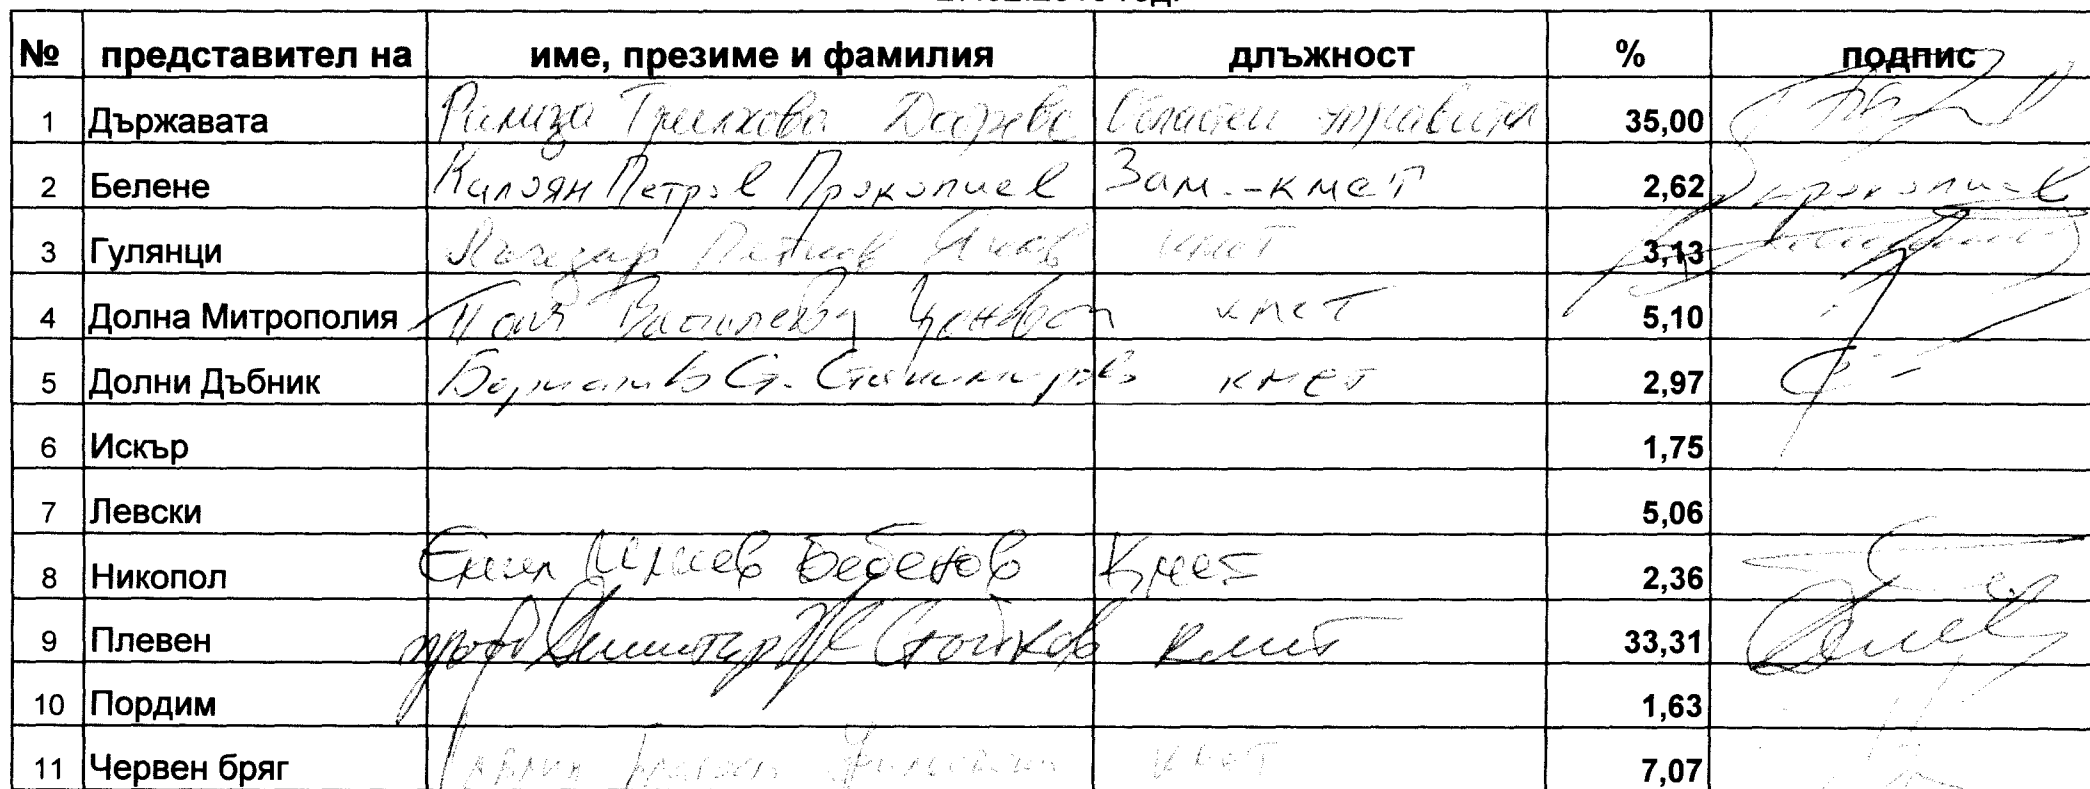 № представител на име, презиме и фамилия длъжност % подпис
1 Държавата Областен управител 35,00
2 Белене Калоян Петров Прокопиев Зам.-кмет 2,62 Прокопиев
3 Гулянци Лъчезар Петков Яков кмет 3,13
4 Долна Митрополия Поля Василева Цоновска кмет 5,10
5 Долни Дъбник Борислав Ст. Станимиров кмет 2,97
6 Искър 1,75
7 Левски 5,06
8 Никопол Емил Бебенов Кмет 2,36
9 Плевен проф Димитър Стойков кмет 33,31
10 Пордим 1,63
11 Червен бряг кмет 7,07